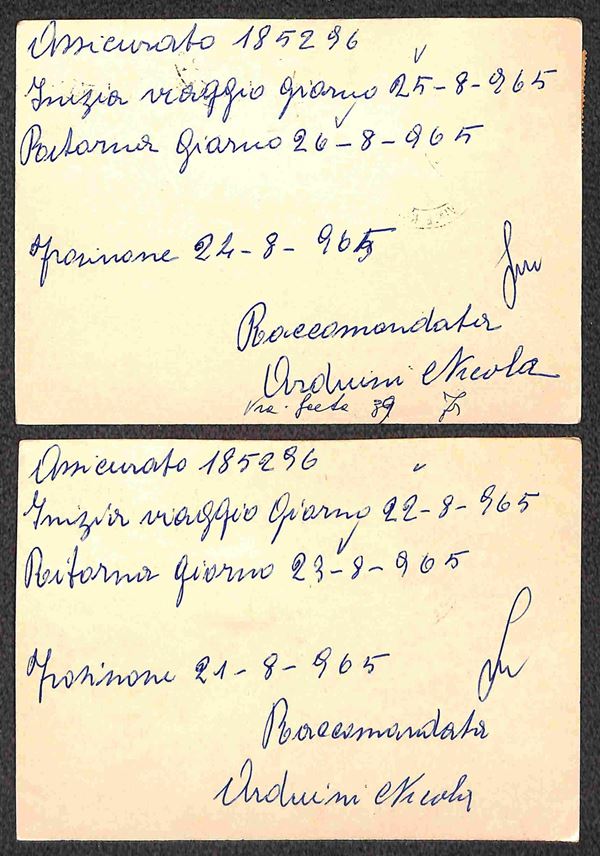 Assicurato 185296
Inizia viaggio giorno 25-8-965
Ritorna giorno 26-8-965
Frosinone 24-8-965
Raccomandata
Arduini Nicola
Via Gaeta 39 Fr
Assicurato 185296
Inizia viaggio Giorno 22-8-965
Ritorna giorno 23-8-965
Frosinone 21-8-965
Raccomandata
Arduini Nicola